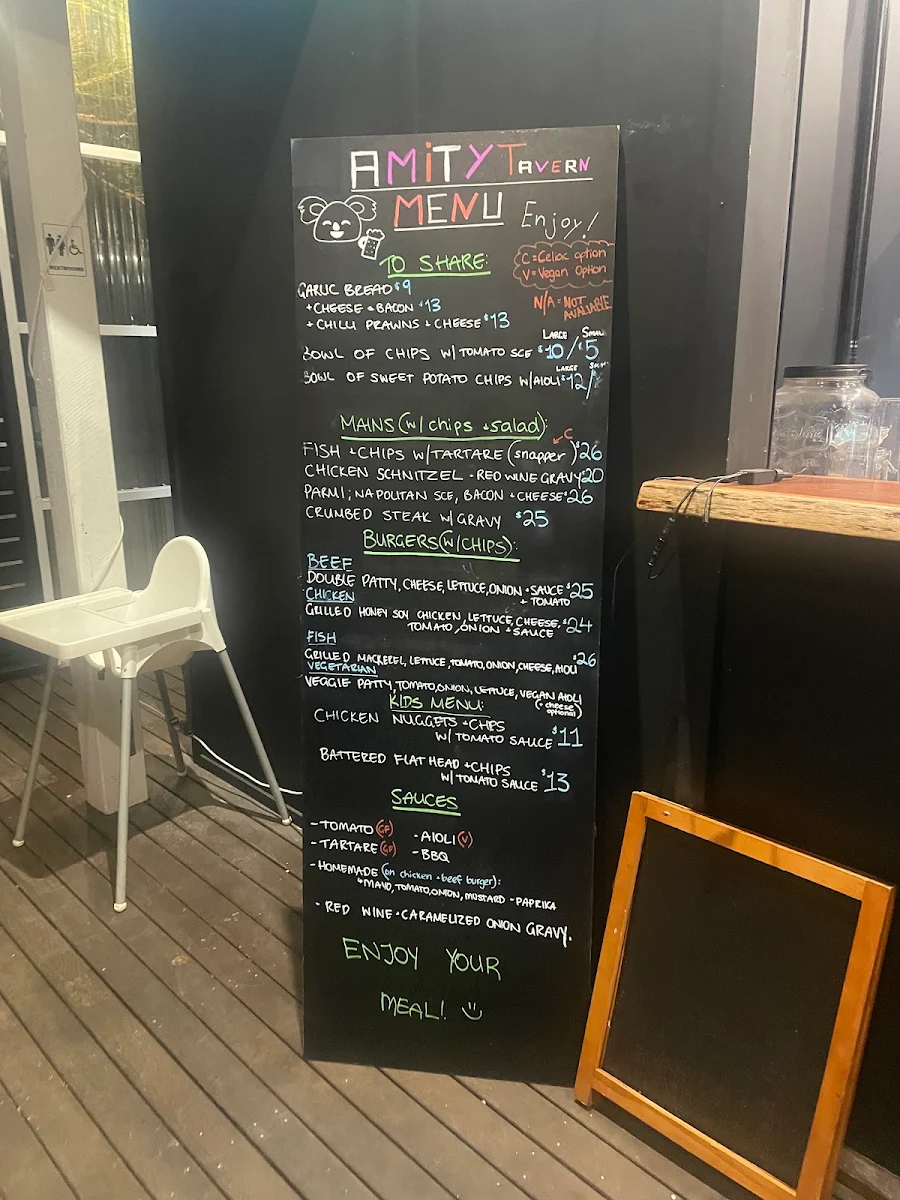 AMiTY TAVERN
MENU
Enjoy!
C = Celiac option
V = Vegan Option
N/A = NOT
AVALIABLE
TO SHARE:
GARLIC BREAD $9
+ CHEESE + BACON $13
+ CHILLI PRAWNS + CHEESE $13
LARGE SMALL
BOWL OF CHIPS W/ TOMATO SCE $10 / $5
LARGE
BOWL OF SWEET POTATO CHIPS W/AIOLI $12 /
MAINS (w/ chips + salad):
C
FISH + CHIPS W/TARTARE (snapper) $26
CHICKEN SCHNITZEL - RED WINE GRAVY $20
PARMI; NAPOLITAN SCE, BACON + CHEESE $26
CRUMBED STEAK W/ GRAVY $25
BURGERS (W/CHIPS):
BEEF
DOUBLE PATTY, CHEESE, LETTUCE, ONION + SAUCE $25
+ TOMATO
CHICKEN
GRILLED HONEY SOY CHICKEN, LETTUCE, CHEESE, $24
TOMATO, ONION + SAUCE
FISH
GRILLED MACKEREL, LETTUCE, TOMATO, ONION, CHEESE, AIOLI $26
VEGETARIAN
VEGGIE PATTY, TOMATO, ONION, LETTUCE, VEGAN AIOLI
(+ cheese
optional)
KIDS MENU:
CHICKEN NUGGETS + CHIPS
W/ TOMATO SAUCE $11
BATTERED FLAT HEAD + CHIPS
W/ TOMATO SAUCE $13
SAUCES
- TOMATO (GF)
- AIOLI (V)
- TARTARE (GF)
- BBQ
- HOMEMADE (on chicken + beef burger):
+ MAYO, TOMATO, ONION, MUSTARD - PAPRIKA
- RED WINE + CARAMELIZED ONION GRAVY.
ENJOY YOUR
MEAL!